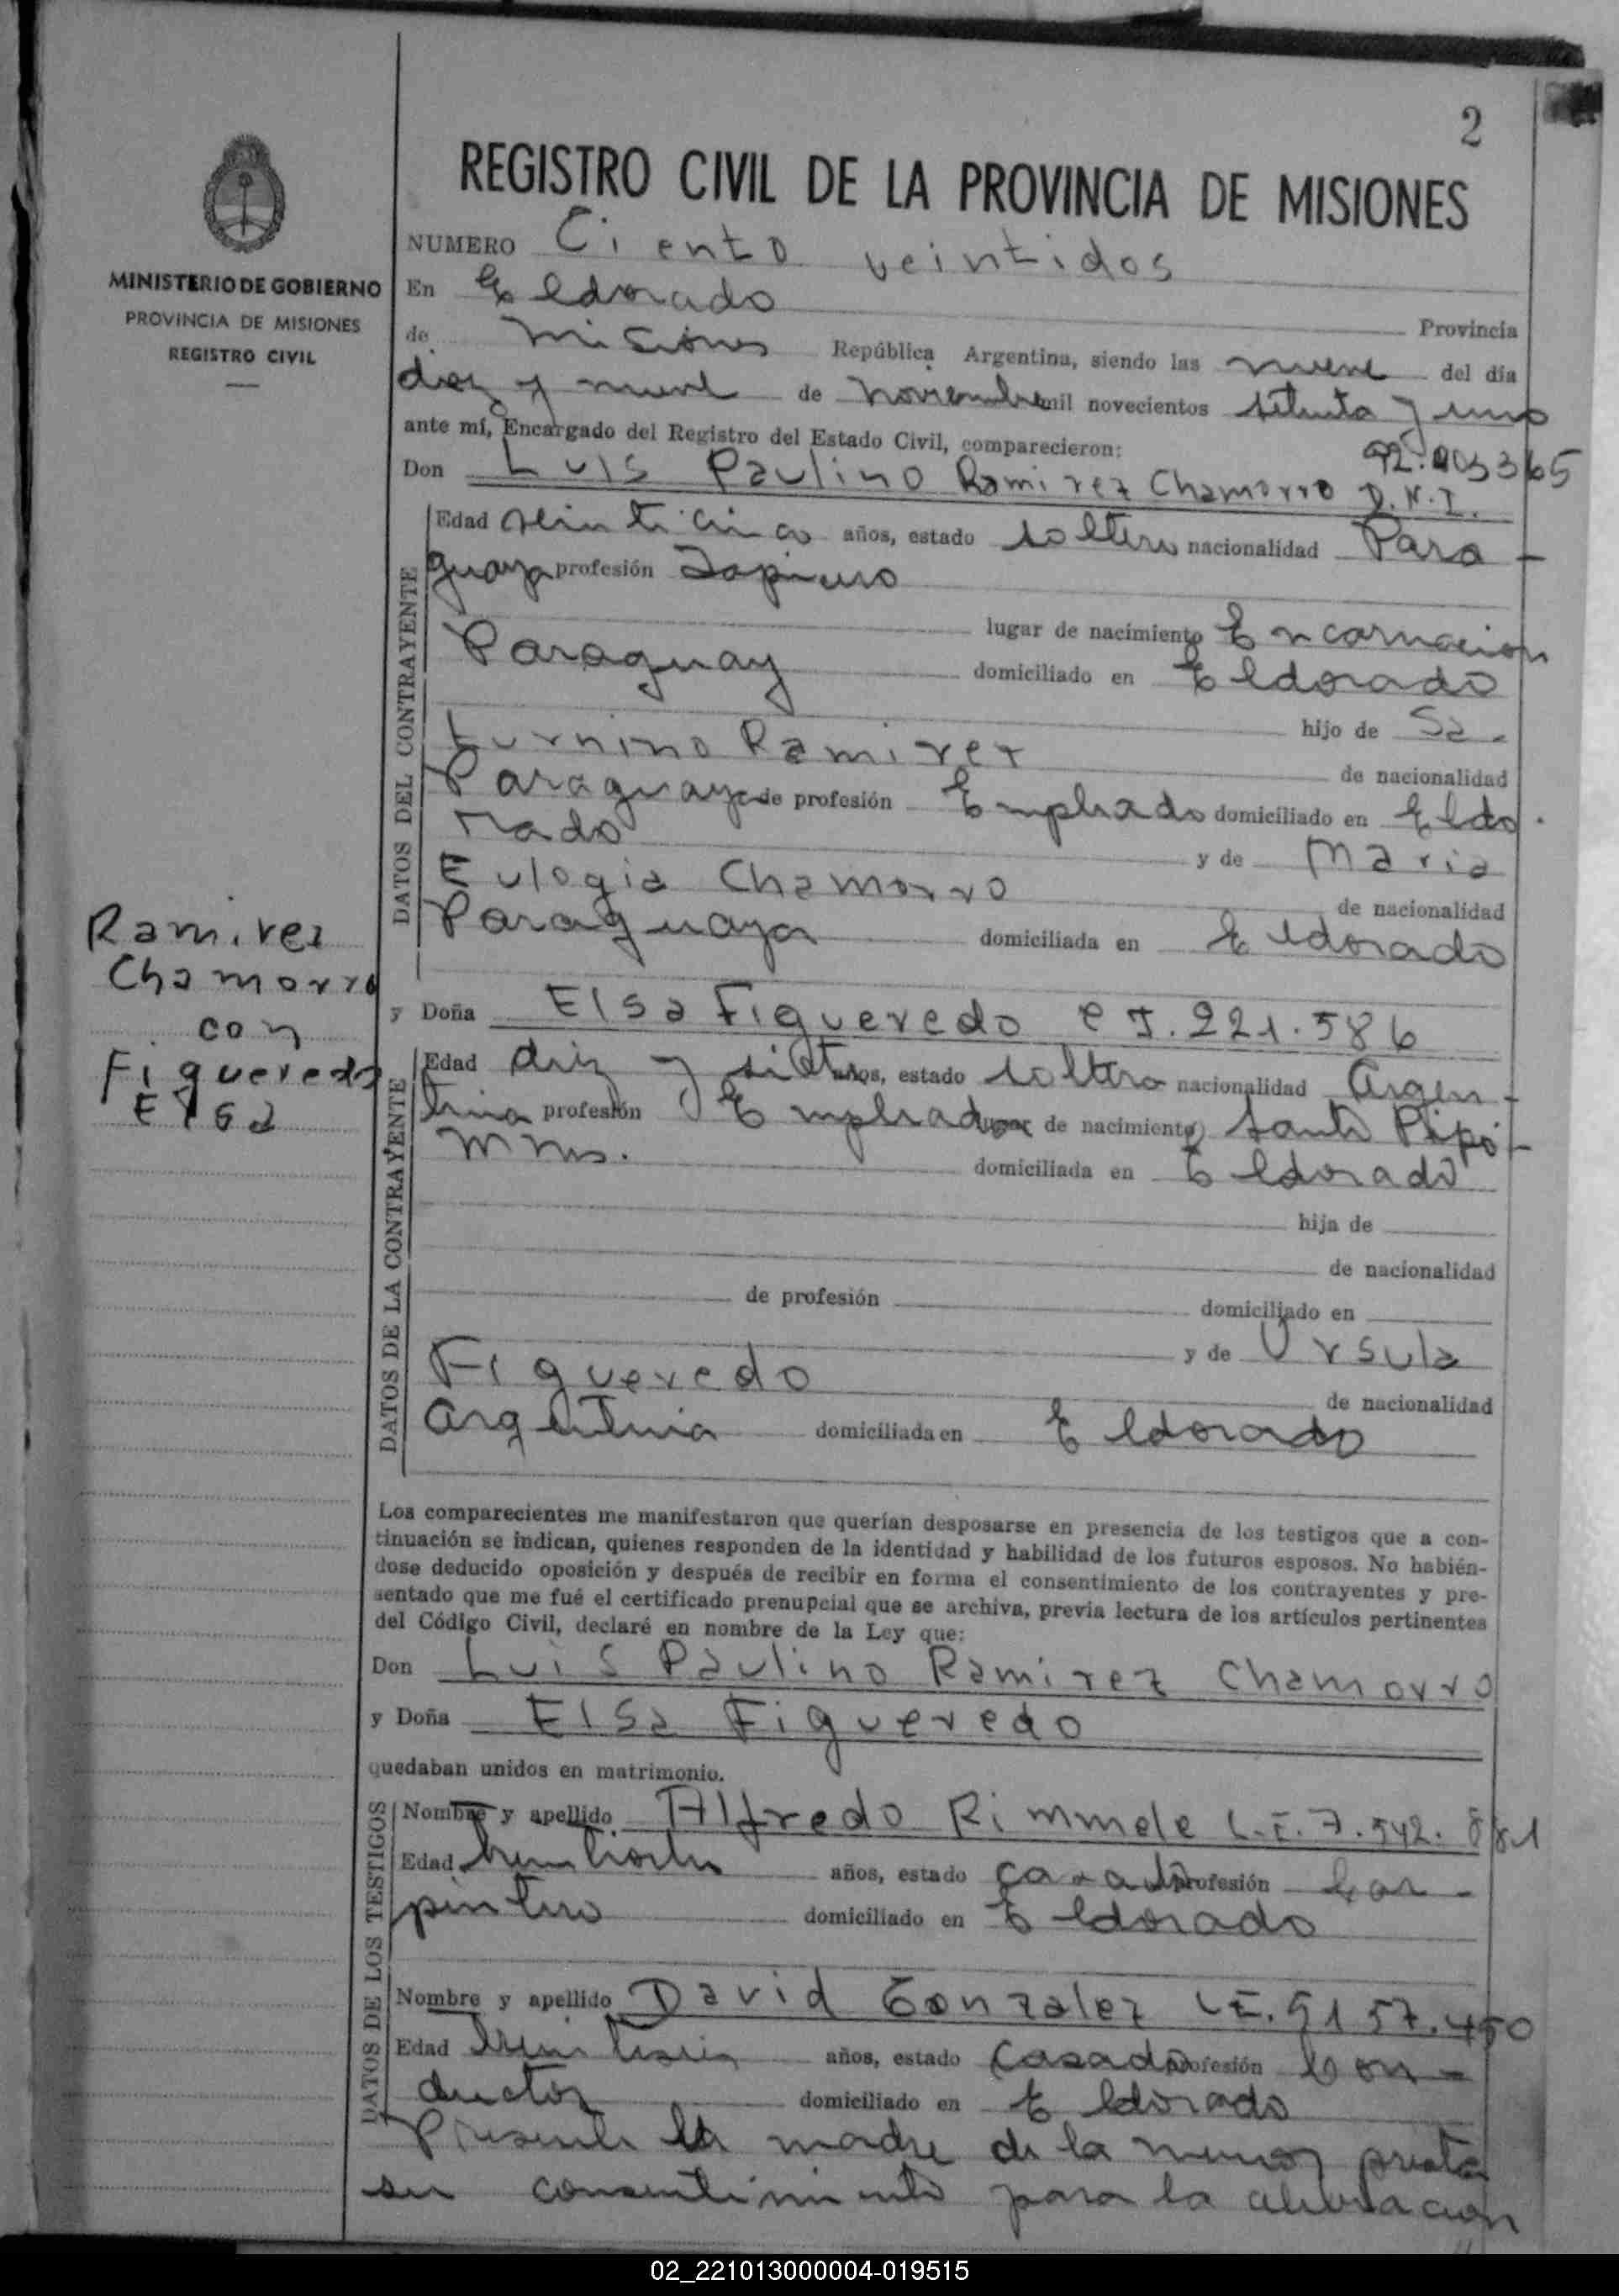 2
REGISTRO CIVIL DE LA PROVINCIA DE MISIONES
MINISTERIO DE GOBIERNO
PROVINCIA DE MISIONES
REGISTRO CIVIL
NUMERO Ciento veintidos
En Eldorado Provincia
de Misiones República Argentina, siendo las nueve del día
diez y nueve de noviembre mil novecientos setenta y uno
ante mí, Encargado del Registro del Estado Civil, comparecieron:
Don Luis Paulino Ramirez Chamorro D.N.I.
DATOS DEL CONTRAYENTE
Edad veinticinco años, estado soltero nacionalidad Para-
guaya profesión
lugar de nacimiento Encarnacion
Paraguay domiciliado en Eldorado
hijo de Sa-
turnino Ramirez de nacionalidad
Paraguaya de profesión Empleado domiciliado en Eldo-
rado y de Maria
Eulogia Chamorro de nacionalidad
Paraguaya domiciliada en Eldorado
Ramirez
Chamorro
con
Figueredo
Elsa
y Doña Elsa Figueredo C I. 221.586
DATOS DE LA CONTRAYENTE
Edad diez y siete años, estado soltera nacionalidad Argen-
tina profesión Empleada lugar de nacimiento Santo Pipó-
Mnes. domiciliada en Eldorado
hija de
de nacionalidad
de profesión domiciliado en
y de Ursula
Figueredo de nacionalidad
Argentina domiciliada en Eldorado
Los comparecientes me manifestaron que querían desposarse en presencia de los testigos que a con-
tinuación se indican, quienes responden de la identidad y habilidad de los futuros esposos. No habién-
dose deducido oposición y después de recibir en forma el consentimiento de los contrayentes y pre-
sentado que me fué el certificado prenupcial que se archiva, previa lectura de los artículos pertinentes
del Código Civil, declaré en nombre de la Ley que:
Don Luis Paulino Ramirez Chamorro
y Doña Elsa Figueredo
quedaban unidos en matrimonio.
DATOS DE LOS TESTIGOS
Nombre y apellido Alfredo Rimmele L.E. 7.542.881
Edad años, estado casado profesión Car-
pintero domiciliado en Eldorado
Nombre y apellido David Gonzalez L.E.
Edad años, estado Casado profesión Con-
ductor domiciliado en Eldorado
Presente la madre de la menor presta
su consentimiento para la celebracion
02_221013000004-019515